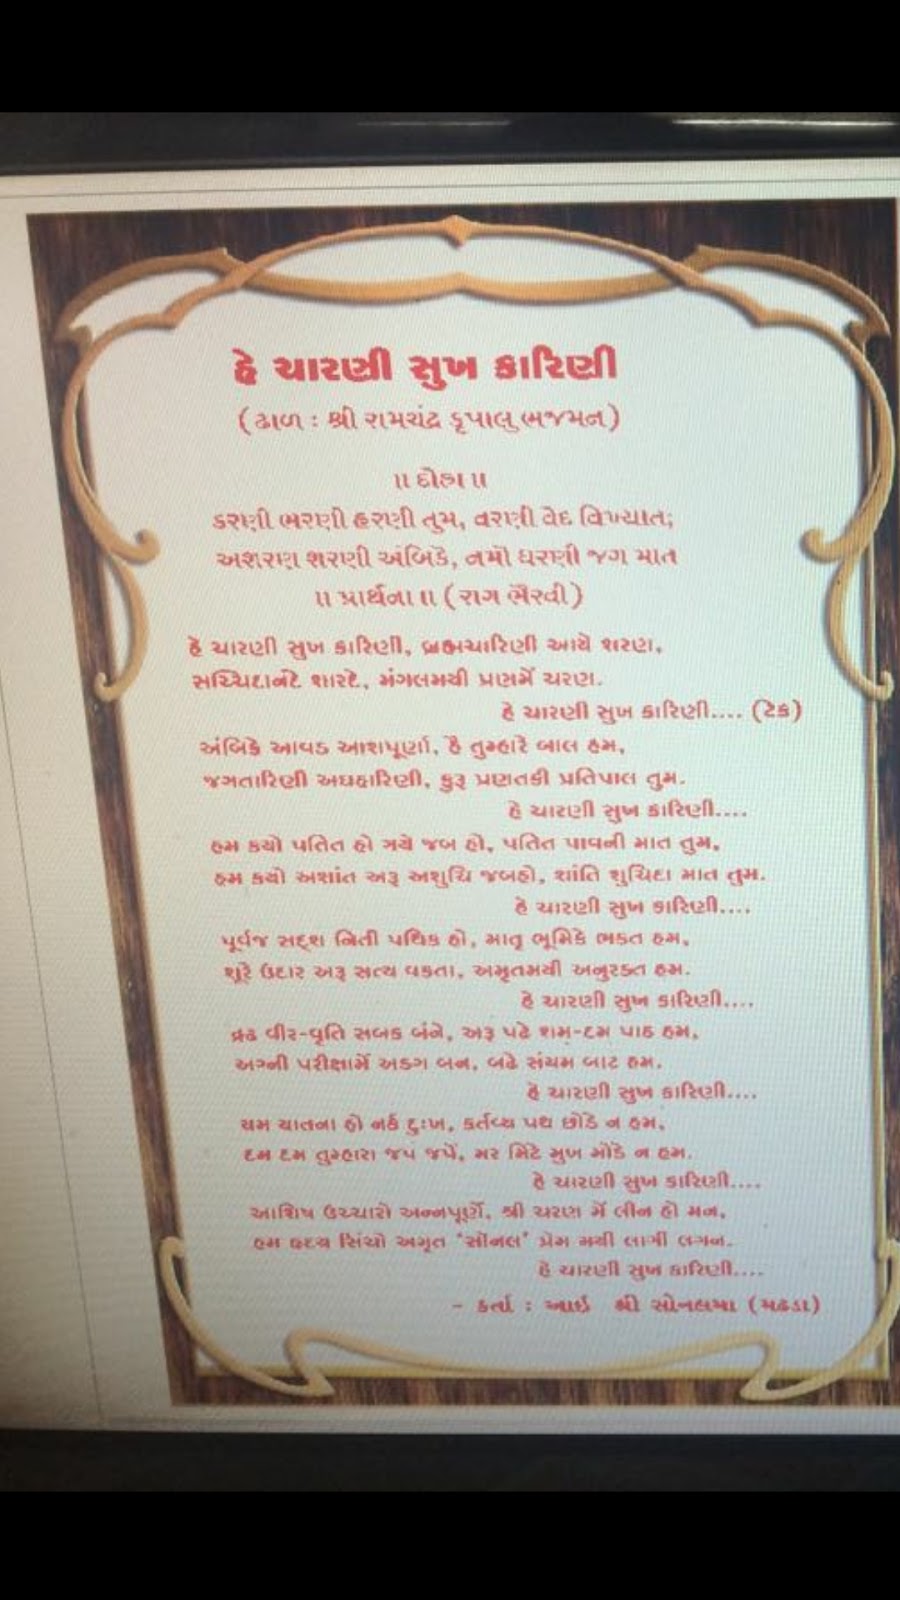 હે ચારણી સુખ કારિણી
(ઢાળ : શ્રી રામચંદ્ર કૃપાલુ ભજમન)
॥ દોહા ॥
કરણી ભરણી હરણી તુમ, વરણી વેદ વિખ્યાત;
અશરણ શરણી અંબિકે, નમો ધરણી જગ માત
॥ પ્રાર્થના ॥ (રાગ ભૈરવી)
હે ચારણી સુખ કારિણી, બ્રહ્મચારિણી આયે શરણ,
સચ્ચિદાનંદે શારદે, મંગલમયી પ્રણમેં ચરણ.
હે ચારણી સુખ કારિણી.... (ટેક)
અંબિકે આવડ આશપૂર્ણા, હૈ તુમ્હારે બાલ હમ,
જગતારિણી અઘહારિણી, કુરૂ પ્રણતકી પ્રતિપાલ તુમ.
હે ચારણી સુખ કારિણી....
હમ કયો પતિત હો ગયે જબ હો, પતિત પાવની માત તુમ,
હમ કયો અશાંત અરૂ અશુચિ જબહો, શાંતિ શુચિદા માત તુમ.
હે ચારણી સુખ કારિણી....
પૂર્વજ સદ્શ નિતી પથિક હો, માતૃ ભૂમિકે ભકત હમ,
શૂરે ઉદાર અરૂ સત્ય વકતા, અમૃતમયી અનુરક્ત હમ.
હે ચારણી સુખ કારિણી....
વ્રઢ વીર-વૃતિ સબક બંને, અરૂ પઢે શમ-દમ પાઠ હમ,
અગ્ની પરીક્ષામેં અડગ બન, બઢે સંયમ બાટ હમ.
હે ચારણી સુખ કારિણી....
યમ યાતના હો નર્ક દુઃખ, કર્તવ્ય પથ છોડે ન હમ,
દમ દમ તુમ્હારા જપ જપેં, મર મિટે મુખ મોડે ન હમ.
હે ચારણી સુખ કારિણી....
આશિષ ઉચ્ચારો અન્નપૂર્ણે, શ્રી ચરણ મેં લીન હો મન,
હમ હૃદય સિંચો અમૃત 'સોનલ' પ્રેમ મયી લાગી લગન.
હે ચારણી સુખ કારિણી....
- કર્તા : આઇ શ્રી સોનલમા (મઢડા)